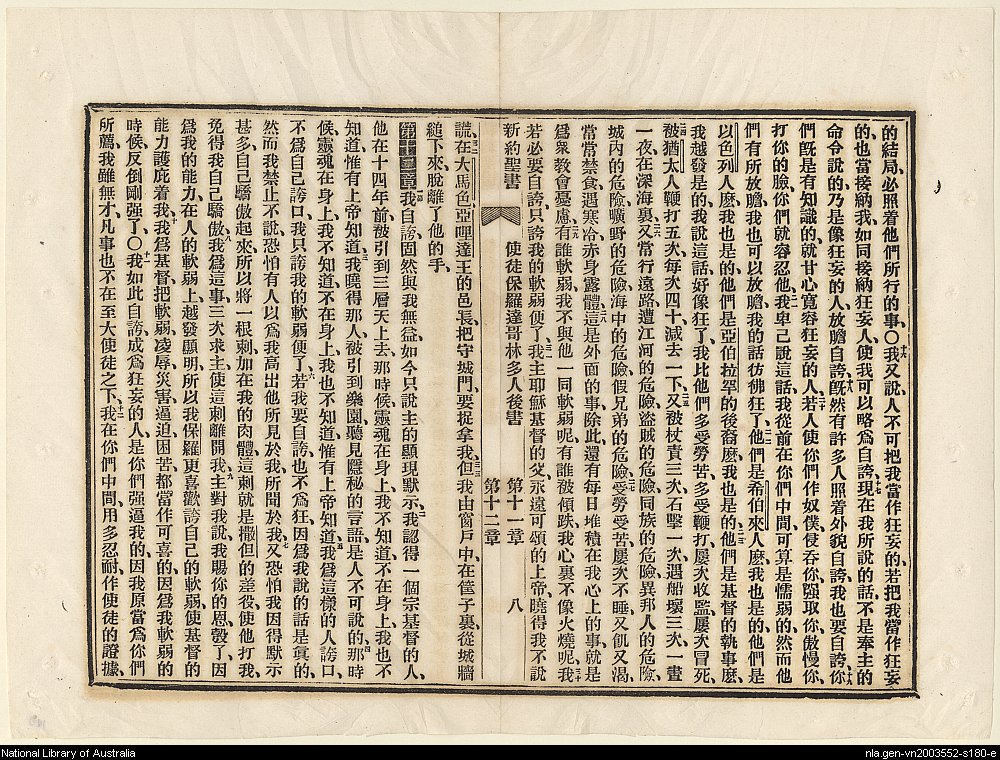 的結局、必照着他們所行的事、○我又說、人不可把我當作狂妄的、若把我當作狂妄
的、也當接納我、如同接納狂妄人、使我可以略爲自誇、現在我所說的話、不是奉主的
命令說的、乃是像狂妄的人放膽自誇、既然有許多人照着外貌自誇、我也要自誇、你
們既是有知識的、就甘心寬容狂妄的人、若人使你們作奴僕、侵吞你、强取你、傲慢你、
打你的臉、你們就容忍他、我卑己說這話、我從前在你們中間、可算是懦弱的、然而他
們有所放膽、我也可以放膽、我的話彷彿狂了、他們是希伯來人麽、我也是的、他們是
以色列人麽、我也是的、他們是亞伯拉罕的後裔麽、我也是的、他們是基督的執事麽、
我越發是的、我說這話好像狂了、我比他們多受勞苦、多受鞭打、屢次收監、屢次冒死、
被猶太人鞭打五次、每次四十減去一下、又被杖責三次、石擊一次、遇船壞三次、一晝
一夜在深海裏、又常行遠路、遭江河的危險、盜賊的危險、同族的危險、異邦人的危險、
城內的危險、曠野的危險、海中的危險、假兄弟的危險、受勞受苦、屢次不睡、又飢又渴、
常常禁食、遇寒冷、赤身露體、這是外面的事、除此還有每日堆積在我心上的事、就是
爲衆教會憂慮、有誰軟弱、我不與他一同軟弱呢、有誰被傾跌、我心裏不像火燒呢、我
若必要自誇、只誇我的軟弱便了、我主耶穌基督的父、永遠可頌的上帝、曉得我不說
新約聖書 使徒保羅達哥林多人後書 第十一章 第十二章 八
謊、在大馬色、亞哩達王的邑長、把守城門、要捉拿我、但我由窗戶中、在筐子裏、從城牆
縋下來、脫離了他的手、
第十二章我自誇固然與我無益、如今只說主的顯現默示、我認得一個宗基督的人、
他在十四年前、被引到三層天上去、那時候靈魂在身上、我不知道、不在身上、我也不
知道、惟有上帝知道、我曉得那人、被引到樂園、聽見隱秘的言語、是人不可說的、那時
候靈魂在身上、我不知道、不在身上、我也不知道、惟有上帝知道、我爲這樣的人誇口、
不爲自己誇口、我只誇我的軟弱便了、若我要自誇、也不爲狂、因爲我說的話是眞的、
然而我禁止不說、恐怕有人以爲我高出他所見於我、所聞於我、又恐怕我因得默示
甚多、自己驕傲起來、所以將一根刺加在我的肉體、這刺就是撒但的差役、使他打我、
免得我自己驕傲、我爲這事三次求主、使這刺離開我、主對我說、我賜你的恩彀了、因
爲我的能力、在人的軟弱上、越發顯明、所以我保羅更喜歡誇自己的軟弱、使基督的
能力護庇着我、我爲基督、把軟弱、凌辱、災害、逼迫、困苦、都當作可喜的、因爲我軟弱的
時候、反倒剛強了、○我如此自誇、成爲狂妄的人、是你們强逼我的、因我原當爲你們
所薦、我雖無才、凡事也不在至大使徒之下、我在你們中間、用多忍耐、作使徒的證據、
National Library of Australia
nla.gen-vn2003552-s180-e